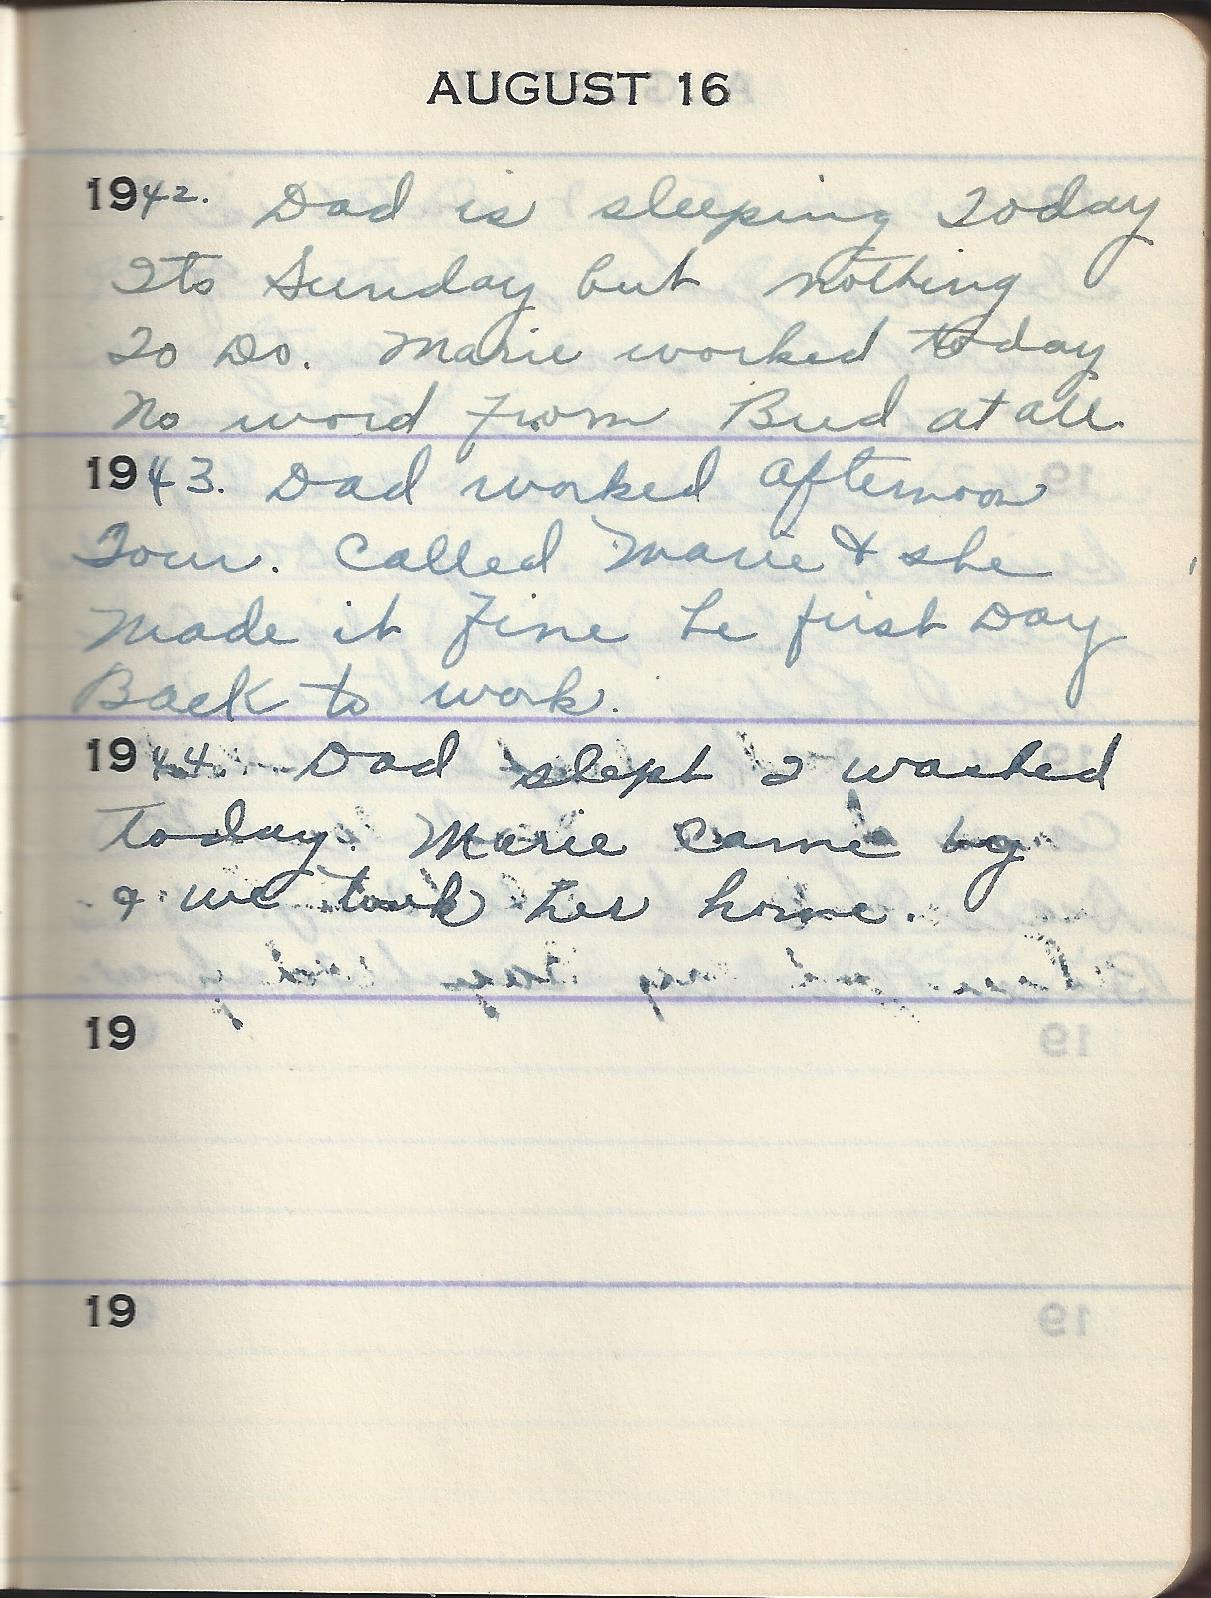 AUGUST 16
1942. Dad is sleeping Today
Its Sunday but nothing
To Do. Marie worked today
No word from Bud at all.
1943. Dad worked afternoon
Tour. Called Marie & she
Made it fine he first Day
Back to work.
1944. Dad slept I washed
today. Marie came by
& we took her home.
19
19